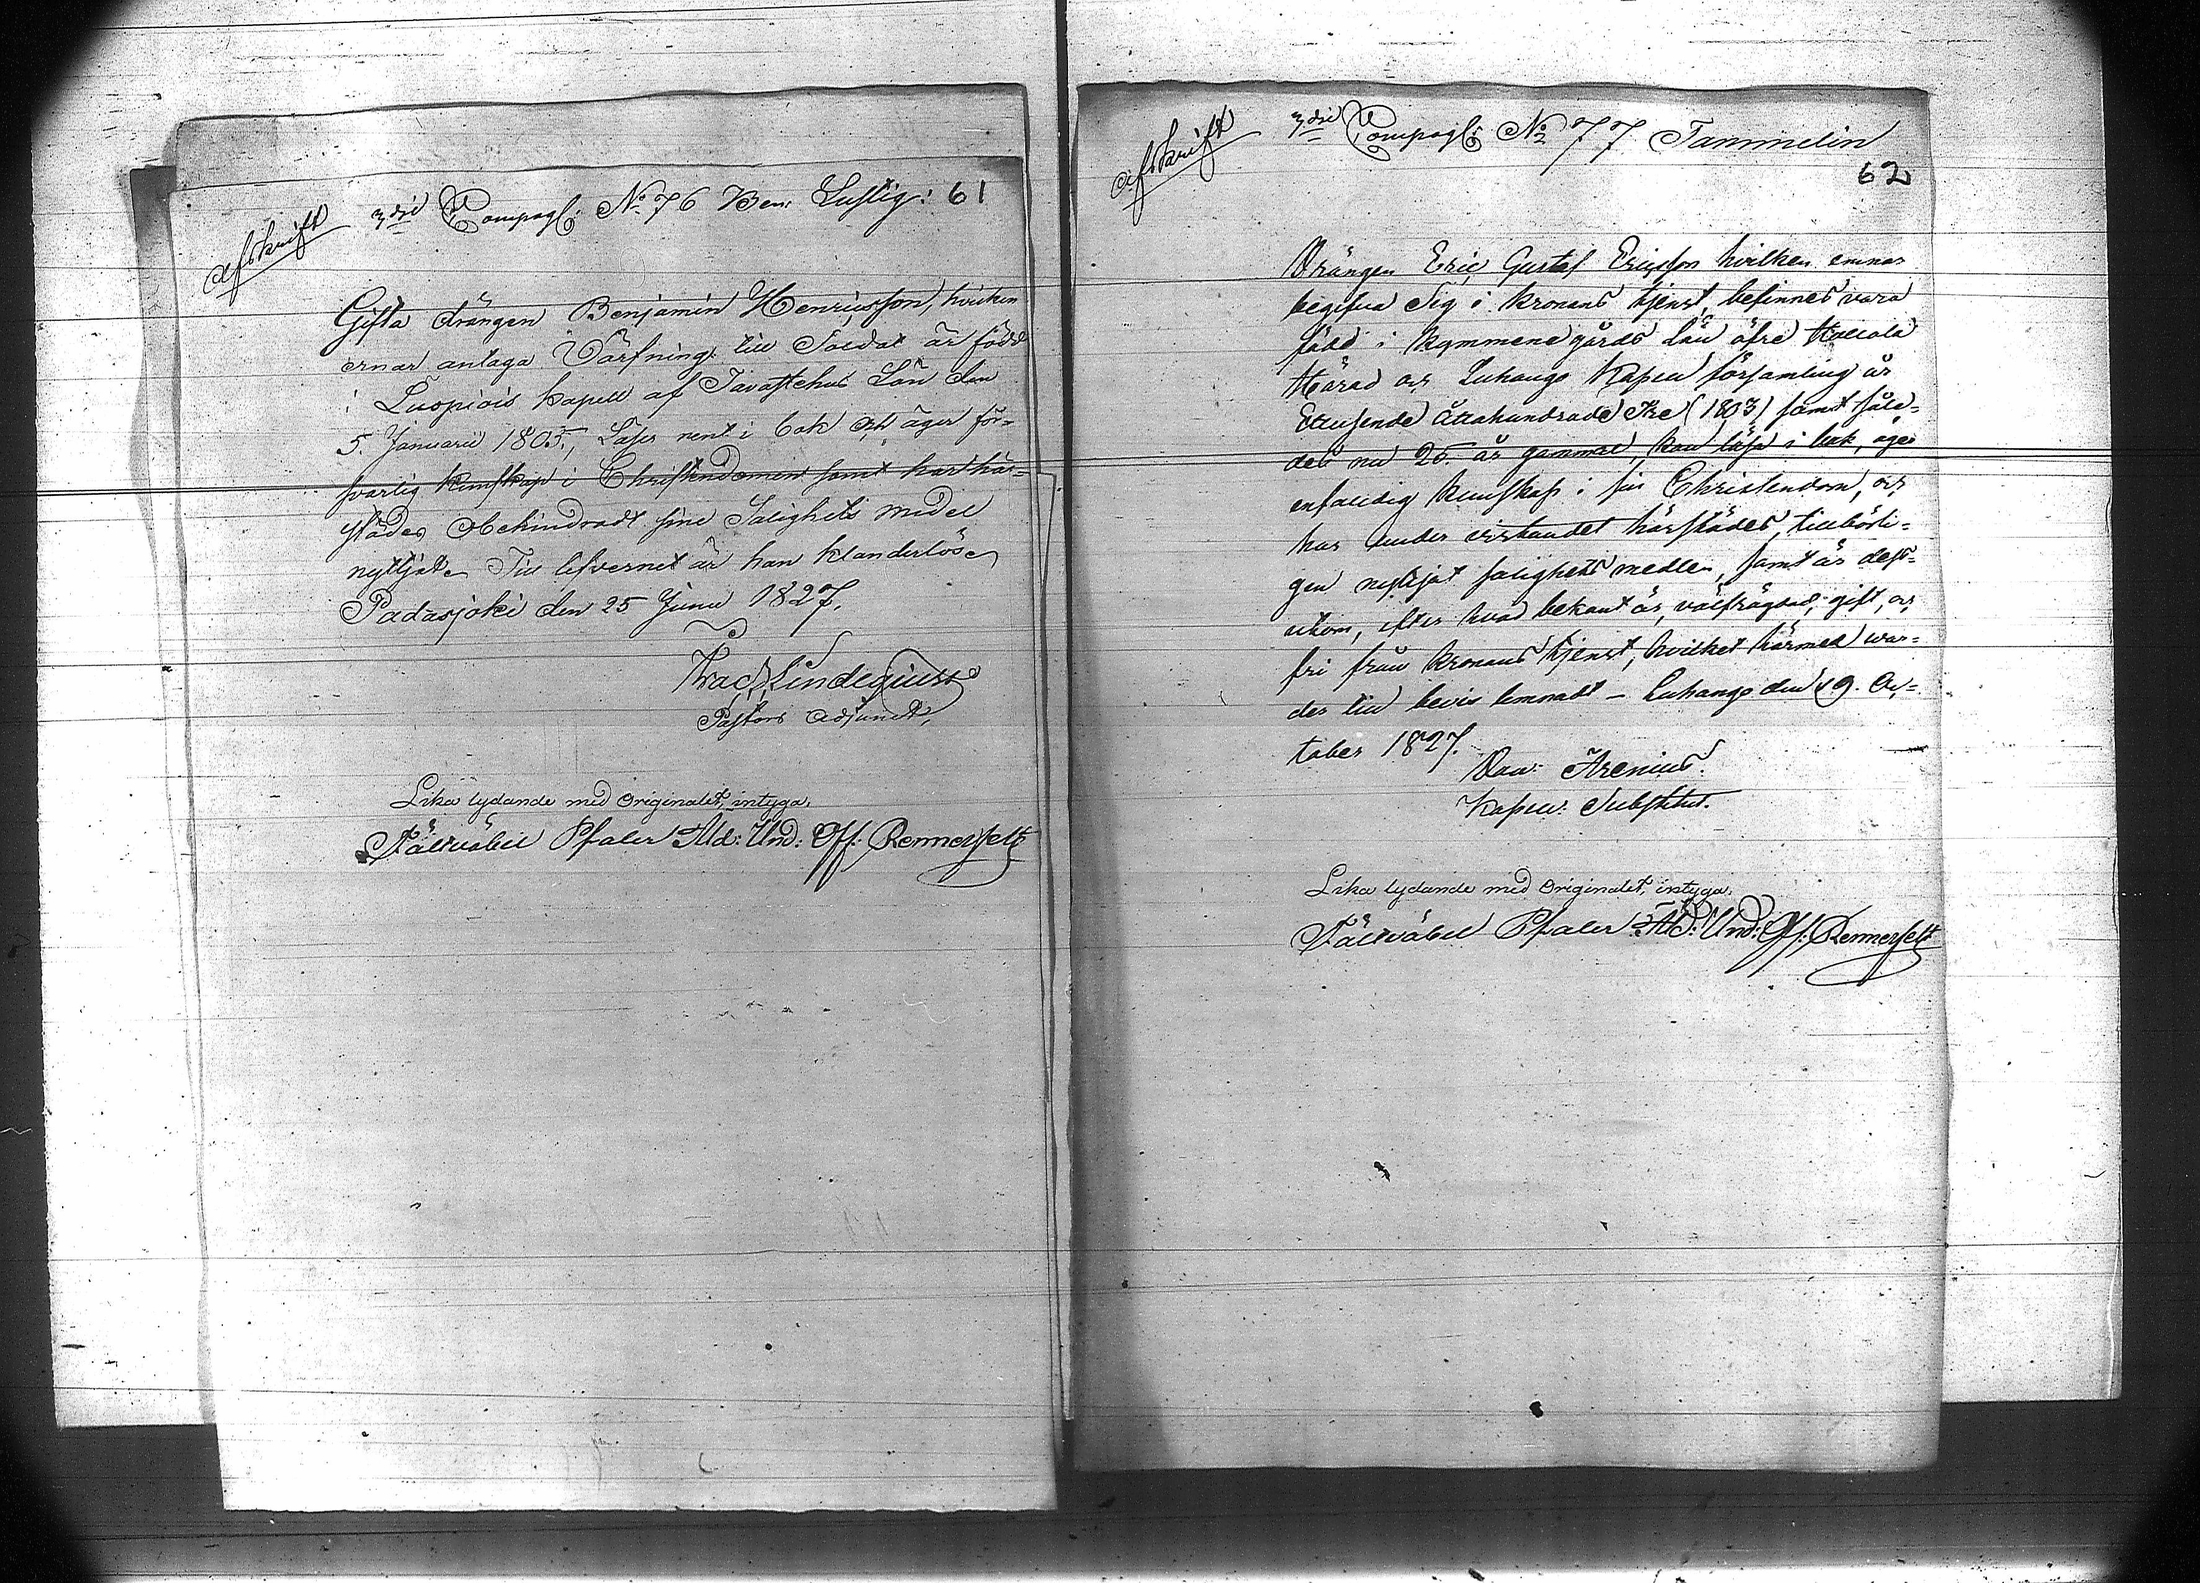 afskrift
3die Compagl: No 76 Ben: Lustig: 61
Gifta drängen Benjamin Henricsson, hvilken
ernar antaga Värfning till Soldat är född
i Luopiois kapell af Tavastehus Län den
5. Januarii 1805, Läser rent i bok och äger för=
svarlig kunskap i Christendomen samt har här=
städes obehindradt sine Salighets medel
nyttjat. Till lefvernet är han klanderlös.
Padasjoki den 25 Junii 1827.
Frac Lindeqvist
Pastors Adjunct,
Lika lydande med Originalet, intyga.
Fältväbel Pfaler Ad: Und: Off: Rennerfelt
afskrift
3die Compagl: No 77 Tammelin
62
Drängen Eric Gustaf Ericsson hvilken ernar
begifva Sig i kronans tjenst, befinnes vara
född i Kymmenegårds Län öfre Hollola
Härad och Luhango Kapell församling år
Ettusende Åttahundrade Tre (1803) samt såle=
des nu 25. år gammal, kan läsa i bok, äger
enfaldig kunskap i sin Christendom, och
har under vistandet härstädes, tillbörli=
gen nyttjat salighets medlen, samt är dess=
utom, efter hvad bekant är, välfrägdad, gift, och
fri från kronans tjenst, hvilket härmed war=
der till bevis lemnadt – Luhango den 19. Oc=
tober 1827.
Dav: Arenius.
Kapell: Substitut.
Lika lydande med Originalet, intyga.
Fältväbel Pfaler Ad: Und: Off: Rennerfelt